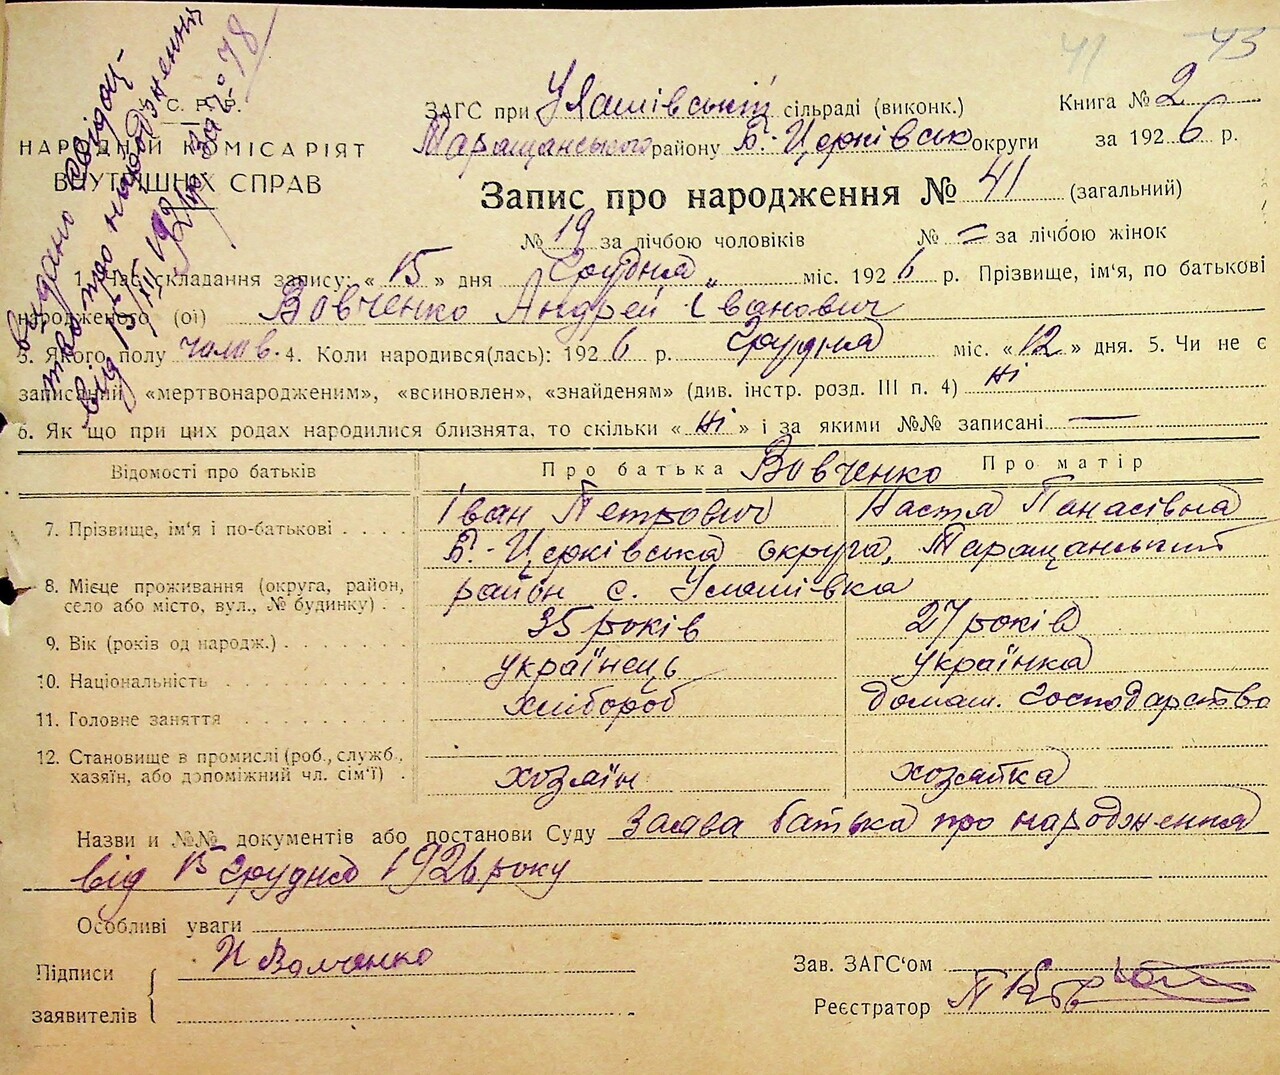 41 43
Видано свідоц-
тво про народження
від 15/XII 192 р за № 78
У.С.Р.Р.
НАРОДНІЙ КОМІСАРІЯТ
ВНУТРІШНІХ СПРАВ
ЗАГС при Улашівській сільраді (виконк.) Книга № 2
Таращанського району Б.-Церківськ округи за 1926 р.
Запис про народження № 41 (загальний)
№ 19 за лічбою чоловіків № = за лічбою жінок
1. Час складання запису: « 15 » дня Грудня міс. 1926 р. Прізвище, ім'я, по батькові
народженого (ої) Вовченко Андрей Іванович
3. Якого полу чолов. 4. Коли народився(лась): 1926 р. Грудня міс. «12» дня. 5. Чи не є
записаний «мертвонародженим», «всиновлен», «знайденям» (див. інстр. розд. III п. 4) ні
6. Як що при цих родах народилися близнята, то скільки « ні » і за якими №№ записані —
Відомості про батьків Про батька Вовченко Про матір
7. Прізвище, ім'я і по-батькові Іван Петрович Настя Панасівна
8. Місце проживання (округа, район, село або місто, вул., № будинку) Б.-Церківська округа, Таращанський
район с. Улашівка
9. Вік (років од народж.) 35 років 27 років
10. Національність українець українка
11. Головне заняття хлібороб домаш. господарство
12. Становище в промислі (роб., служб.,
хазяїн, або допоміжний чл. сім'ї) хозяїн хозяйка
Назви и №№ документів або постанови Суду Заява батька про народження
від 15 грудня 1926 року
Особливі уваги
Підписи И Валченко Зав. ЗАГС'ом
заявителів Реєстратор